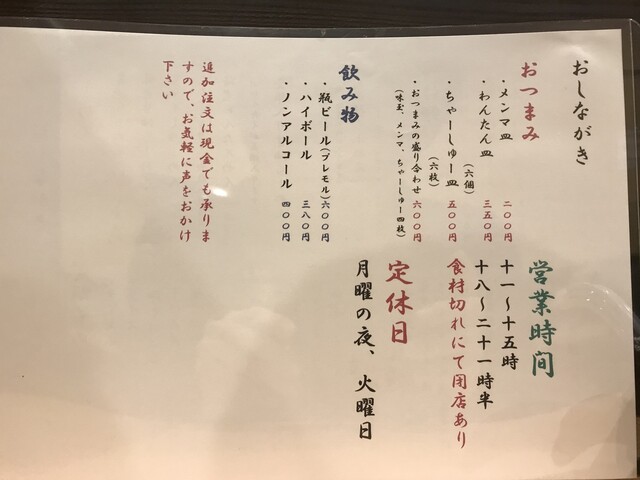 おしながき
おつまみ
・メンマ皿 二〇〇円
・わんたん皿 三五〇円
(六個)
・ちゃーしゅー皿 五〇〇円
(六枚)
・おつまみの盛り合わせ 六〇〇円
(味玉、メンマ、ちゃーしゅー四枚)
飲み物
・瓶ビール(プレモル)六〇〇円
・ハイボール 三八〇円
・ノンアルコール 四〇〇円
追加注文は現金でも承りま
すので、お気軽に声をおかけ
下さい
営業時间
十一～十五時
十八～二十一時半
食材切れにて閉店あり
定休日
月曜の夜、火曜日